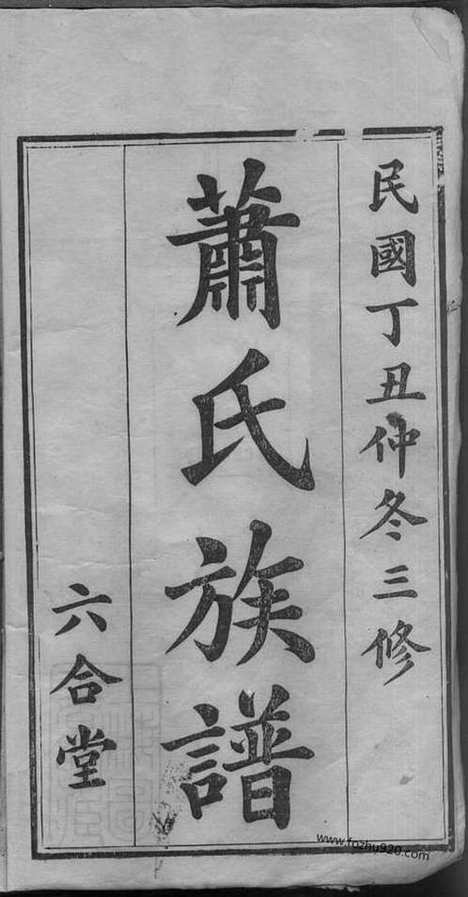 民國丁丑仲冬三修
蕭氏族譜
六合堂
www.fozhu920.com